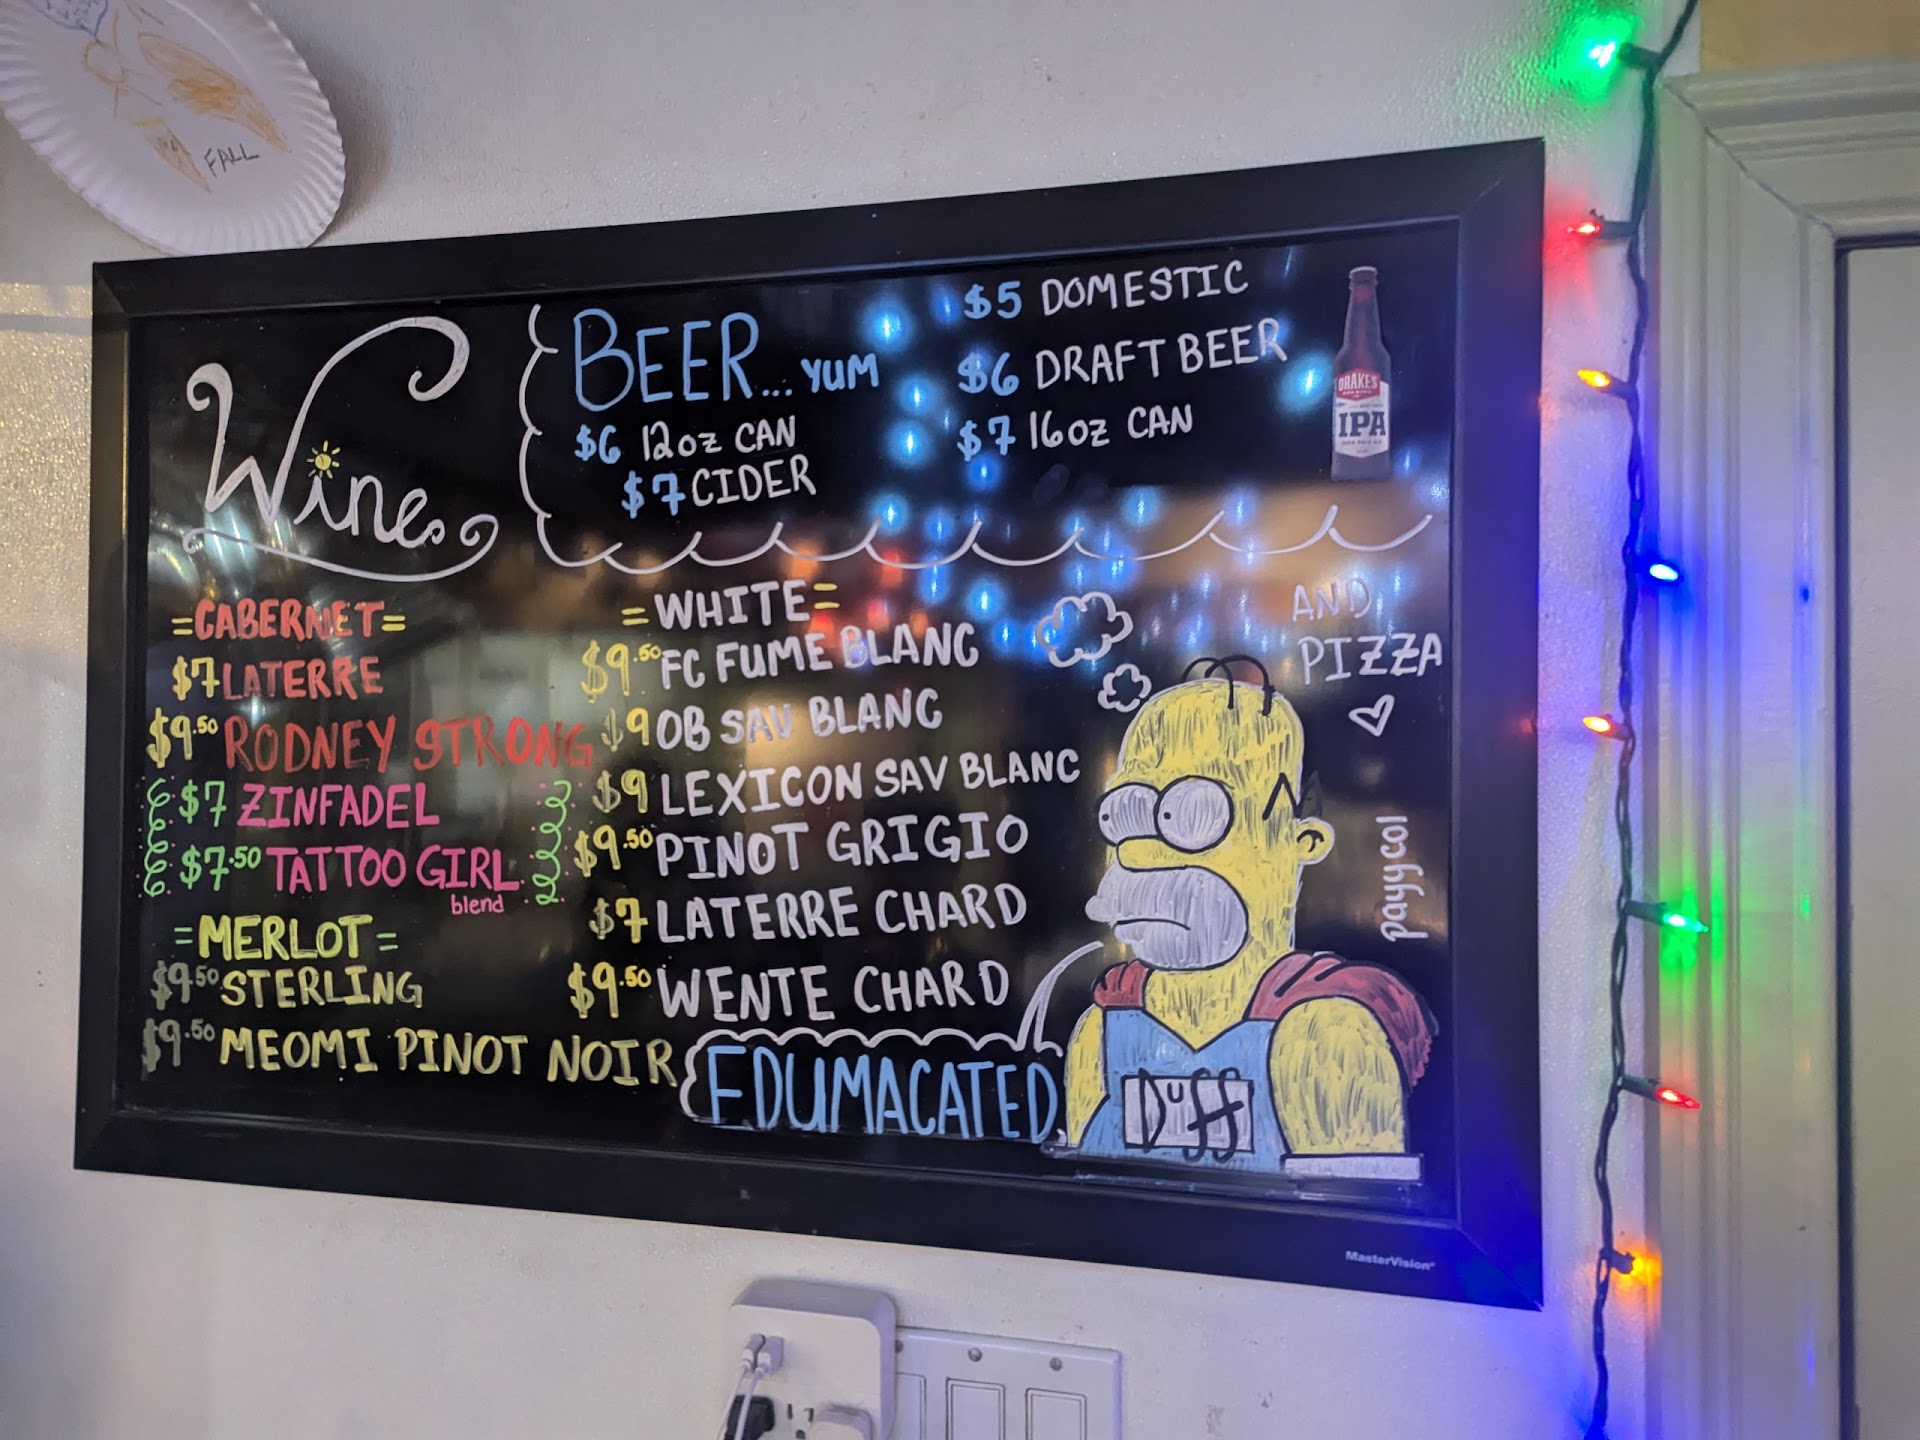 FALL
Wine
BEER... YUM
$6 12oz CAN
$7 CIDER
$5 DOMESTIC
$6 DRAFT BEER
$7 16oz CAN
DRAKES
IPA
=CABERNET=
$7 LATERRE
$9.50 RODNEY STRONG
$7 ZINFADEL
$7.50 TATTOO GIRL
blend
=MERLOT=
$9.50 STERLING
$9.50 MEOMI PINOT NOIR
=WHITE=
$9.50 FC FUME BLANC
$9 OB SAV BLANC
$9 LEXICON SAV BLANC
$9.50 PINOT GRIGIO
$7 LATERRE CHARD
$9.50 WENTE CHARD
EDUMACATED
AND
PIZZA
payycol
Duff
MasterVision®